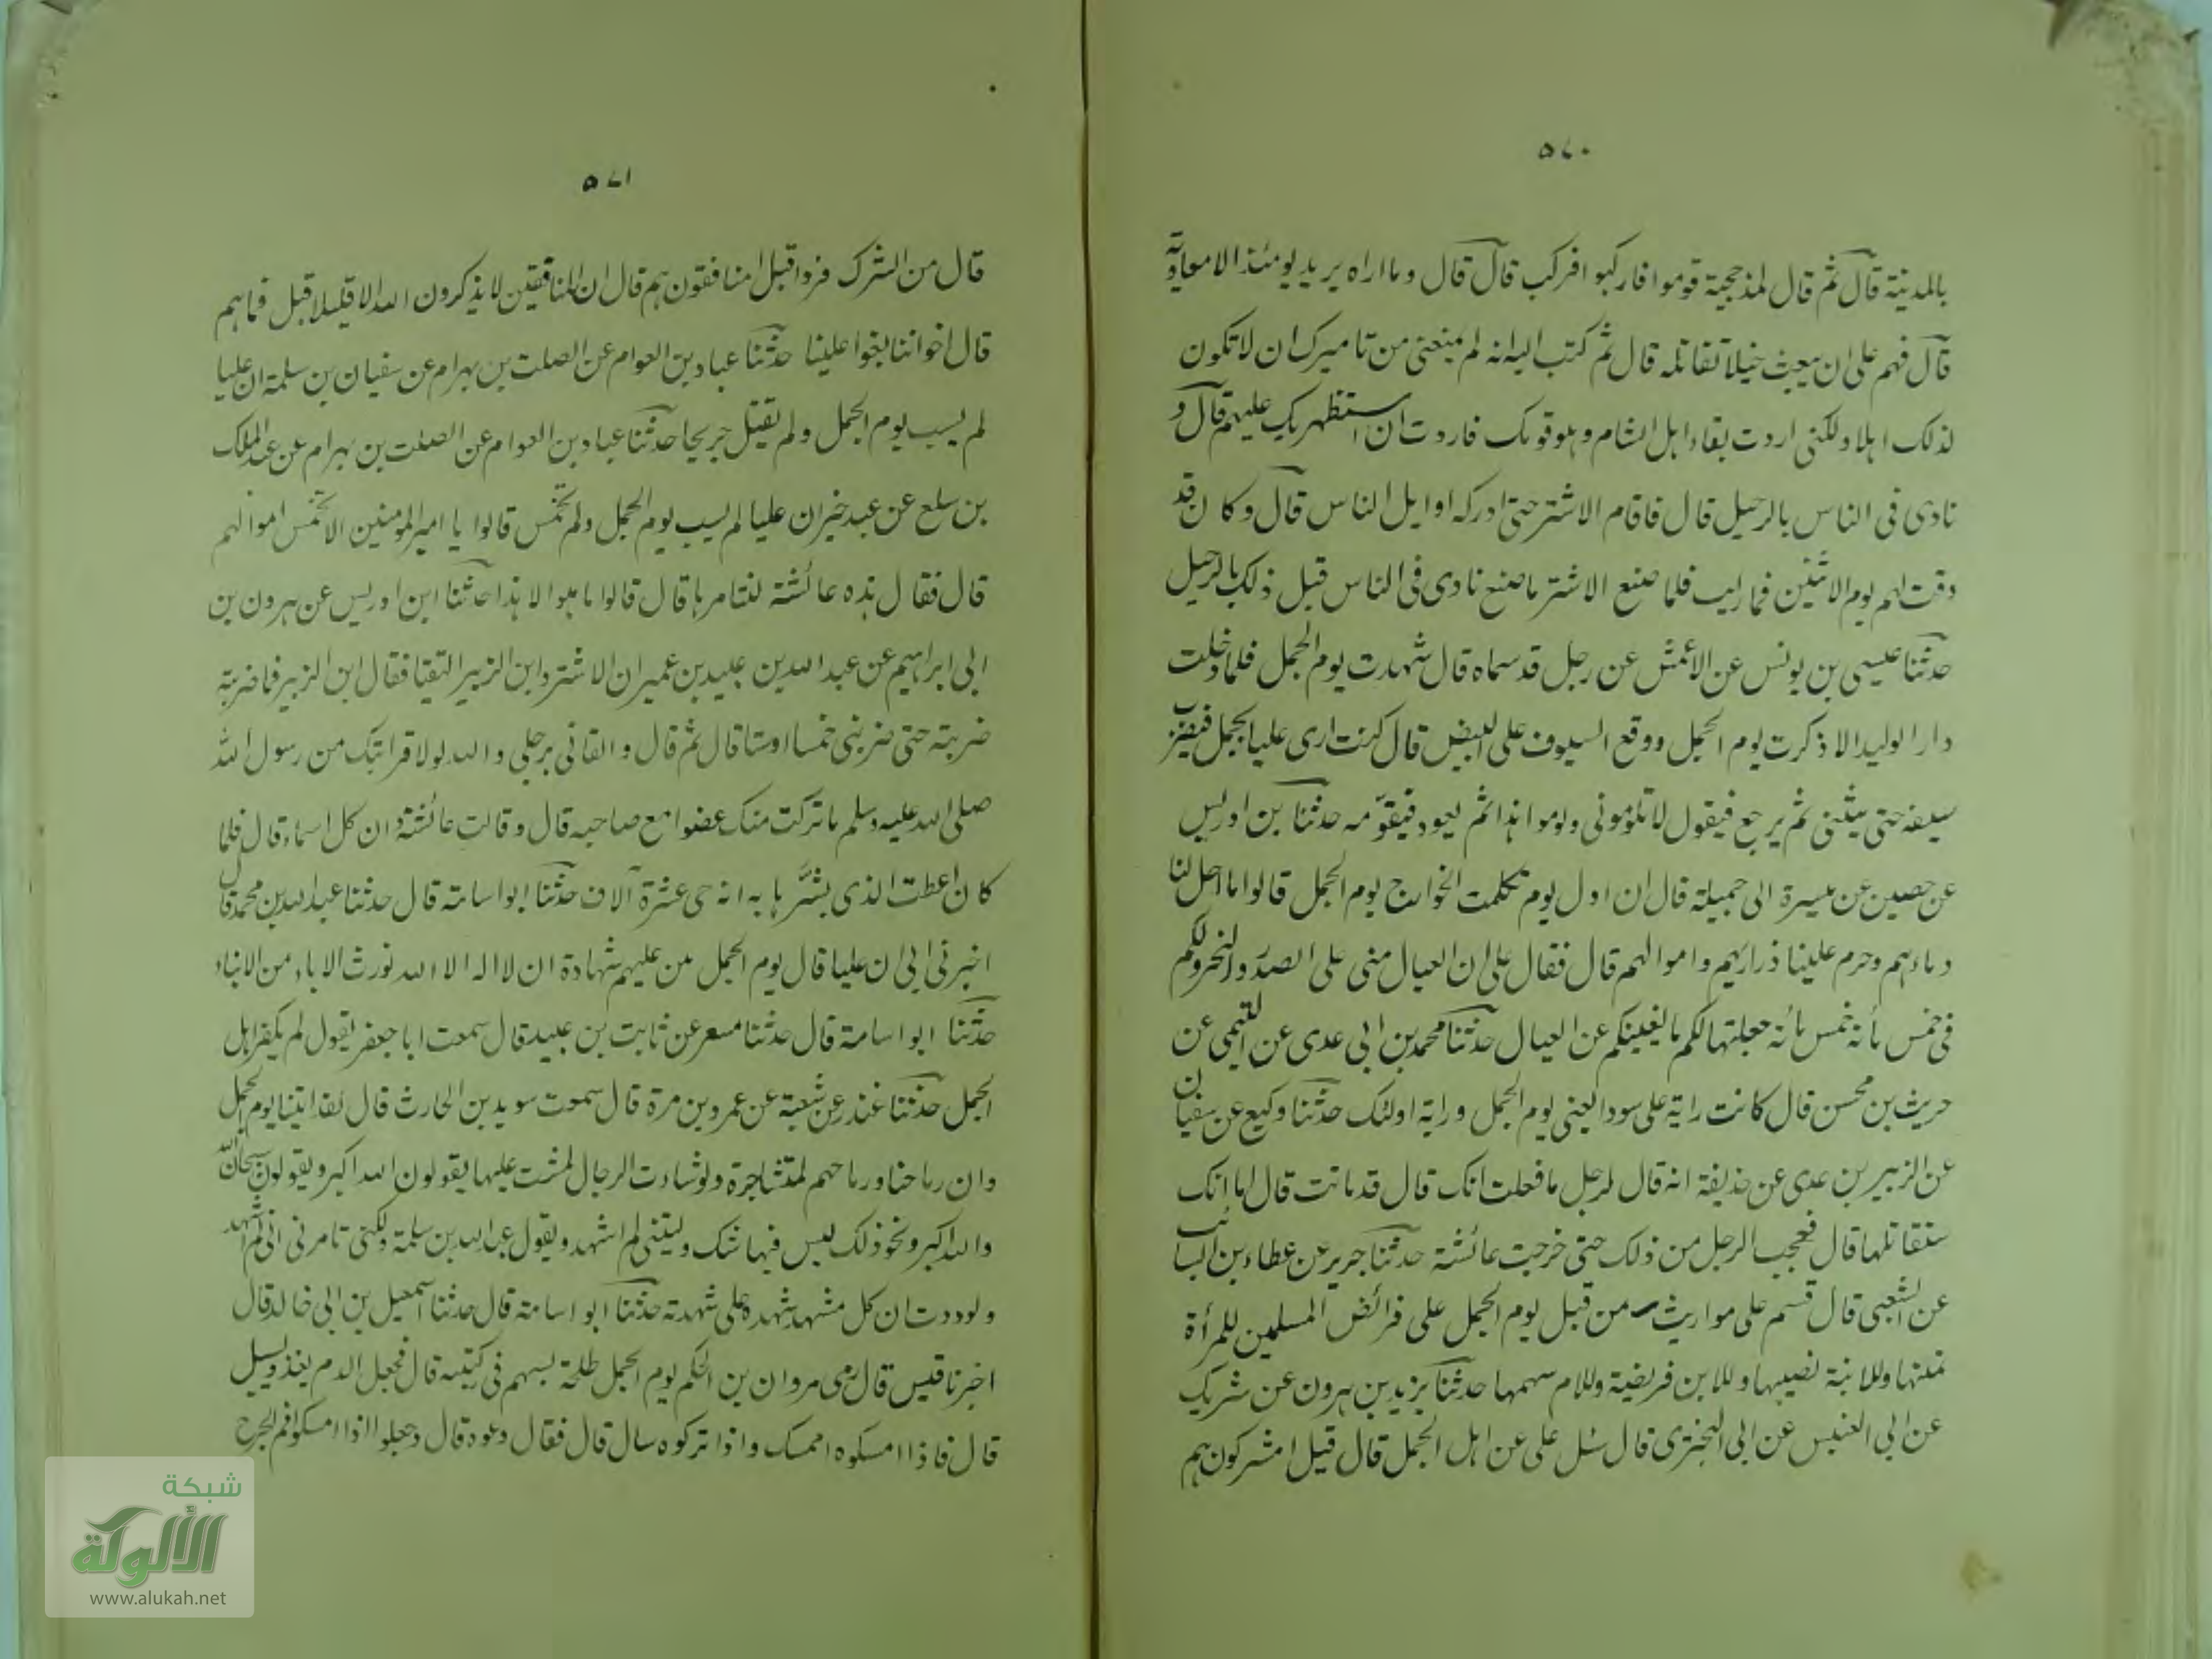 ٥٧٠
بالمدينة قال ثم قال لمذحجية قوموا فاركبوا فركب قال قال وما اراه يريد يومئذ الا معاوية
قال فهم علي ان يبعث خيلا تقاتله قال ثم كتب اليه انه لم يمنعني من تاميرك ان لا تكون
لذلك اهلا ولكني اردت بقاء اهل الشام وهو قومك فاردت ان استظهر بك عليهم قال و
نادى في الناس بالرحيل قال فاقام الاشتر حتى ادركه اوايل الناس قال وكان قد
وقت لهم يوم الاثنين فلما صنع الاشتر ما صنع نادى في الناس قبل ذلك بالرحيل
حدثنا عيسى بن يونس عن الاعمش عن رجل قد سماه قال شهدت يوم الجمل فلما دخلت
دار الوليد الا ذكرت يوم الجمل ووقع السيوف على البيض قال كنت ارى عليا يحمل فيضرب
سيفه حتى ينثني ثم يرجع فيقول لا تلوموني ولوموا هذا ثم يعود فيقومه حدثنا بن ادريس
عن حصين عن ميسرة ابي جميلة قال ان اول يوم تكلمت الخوارج يوم الجمل قالوا ما احل لنا
دماءهم وحرم علينا ذراريهم واموالهم قال فقال علي ان العيال مني على الصدر والنحر ولكم
في خمس مائة خمس مائة جعلتها لكم ما يغنيكم عن العيال حدثنا محمد بن ابي عدي عن التيمي عن
حريث بن مخشي قال كانت راية علي سودا يعني يوم الجمل وراية اولئك حدثنا وكيع عن سفيان
عن الزبير بن عدي عن حذيفة انه قال لرجل ما فعلت امك قال قد ماتت قال اما انك
ستقاتلها قال فعجب الرجل من ذلك حتى خرجت عائشة حدثنا جرير عن عطاء بن السائب
عن الشعبي قال قسم علي مواريث من قتل يوم الجمل على فرائض المسلمين للمرأة
ثمنها وللابنة نصيبها وللابن فريضة وللام سهمها حدثنا يزيد بن هرون عن شريك
عن ابي العنبس عن ابي البختري قال سئل علي عن اهل الجمل قال قيل امشركون هم
٥٧١
قال من الشرك فروا قيل امنافقون هم قال ان المنافقين لا يذكرون الله الا قليلا قيل فما هم
قال اخواننا بغوا علينا حدثنا عباد بن العوام عن الصلت بن بهرام عن سفيان بن سلمة ان عليا
لم يسب يوم الجمل ولم يقتل جريحا حدثنا عباد بن العوام عن الصلت بن بهرام عن عبد الملك
بن سلع عن عبد خير ان عليا لم يسب يوم الجمل ولم يخمس قالوا يا امير المومنين الا تخمس اموالهم
قال فقال هذه عائشة تستامرها قال قالوا ما هو الا هذا حدثنا ابن ادريس عن هرون بن
ابي ابراهيم عن عبد الله بن عبيد بن عمير ان الاشتر وابن الزبير التقيا فقال ابن الزبير فما ضربته
ضربة حتى ضربني خمسا او ستا قال ثم قال والقاني برجلي والله لولا قرابتك من رسول الله
صلى الله عليه وسلم ما تركت منك عضوا مع صاحبه قال وقالت عائشة وا ثكل اسماء قال فلما
كان اعطت الذي بشرها به انه حي عشرة آلاف حدثنا ابو اسامة قال حدثنا عبد الله بن محمد قال
اخبرني ابي ان عليا قال يوم الجمل من عليهم شهادة ان لا اله الا الله نورث الاباء من الابناء
حدثنا ابو اسامة قال حدثنا مسعر عن ثابت بن عبيد قال سمعت ابا جعفر يقول لم يكفر اهل
الجمل حدثنا غندر عن شعبة عن عمرو بن مرة قال سمعت سويد بن الحارث قال لقد رايتنا يوم الجمل
وان رماحنا ورماحهم لمتشاجرة ولو شاءت الرجال لمشت عليها يقولون الله اكبر ويقولون سبحان الله
والله اكبر ونحو ذلك ليس فيها شك وليتني لم اشهد ويقول عبد الله بن سلمة ولكني ما سرني اني لم اشهد
ولوددت ان كل مشهد شهده علي شهدته حدثنا ابو اسامة قال حدثنا اسمعيل بن ابي خالد قال
اخبرنا قيس قال رمى مروان بن الحكم يوم الجمل طلحة بسهم في ركبته قال فجعل الدم يغذو يسيل
قال فاذا امسكوه امسك واذا تركوه سال قال فقال دعوه قال وجعلوا اذا امسكوا فم الجرح
شبكة
الألوكة
www.alukah.net